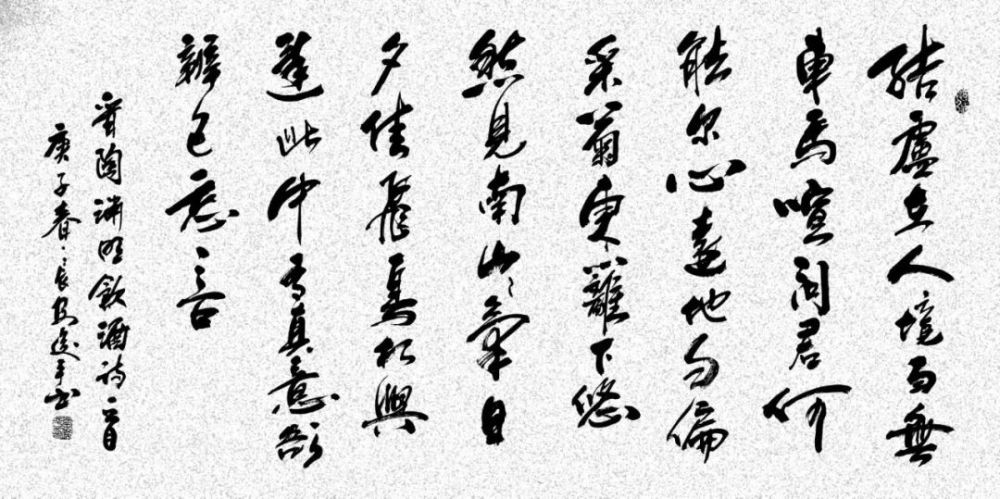 結廬在人境而無
車馬喧問君何
能尔心遠地自偏
采菊東籬下悠
然見南山々氣日
夕佳飛鳥相與
還此中有真意欲
辨已忘言
晋陶渊明飲酒诗一首
庚子春長安